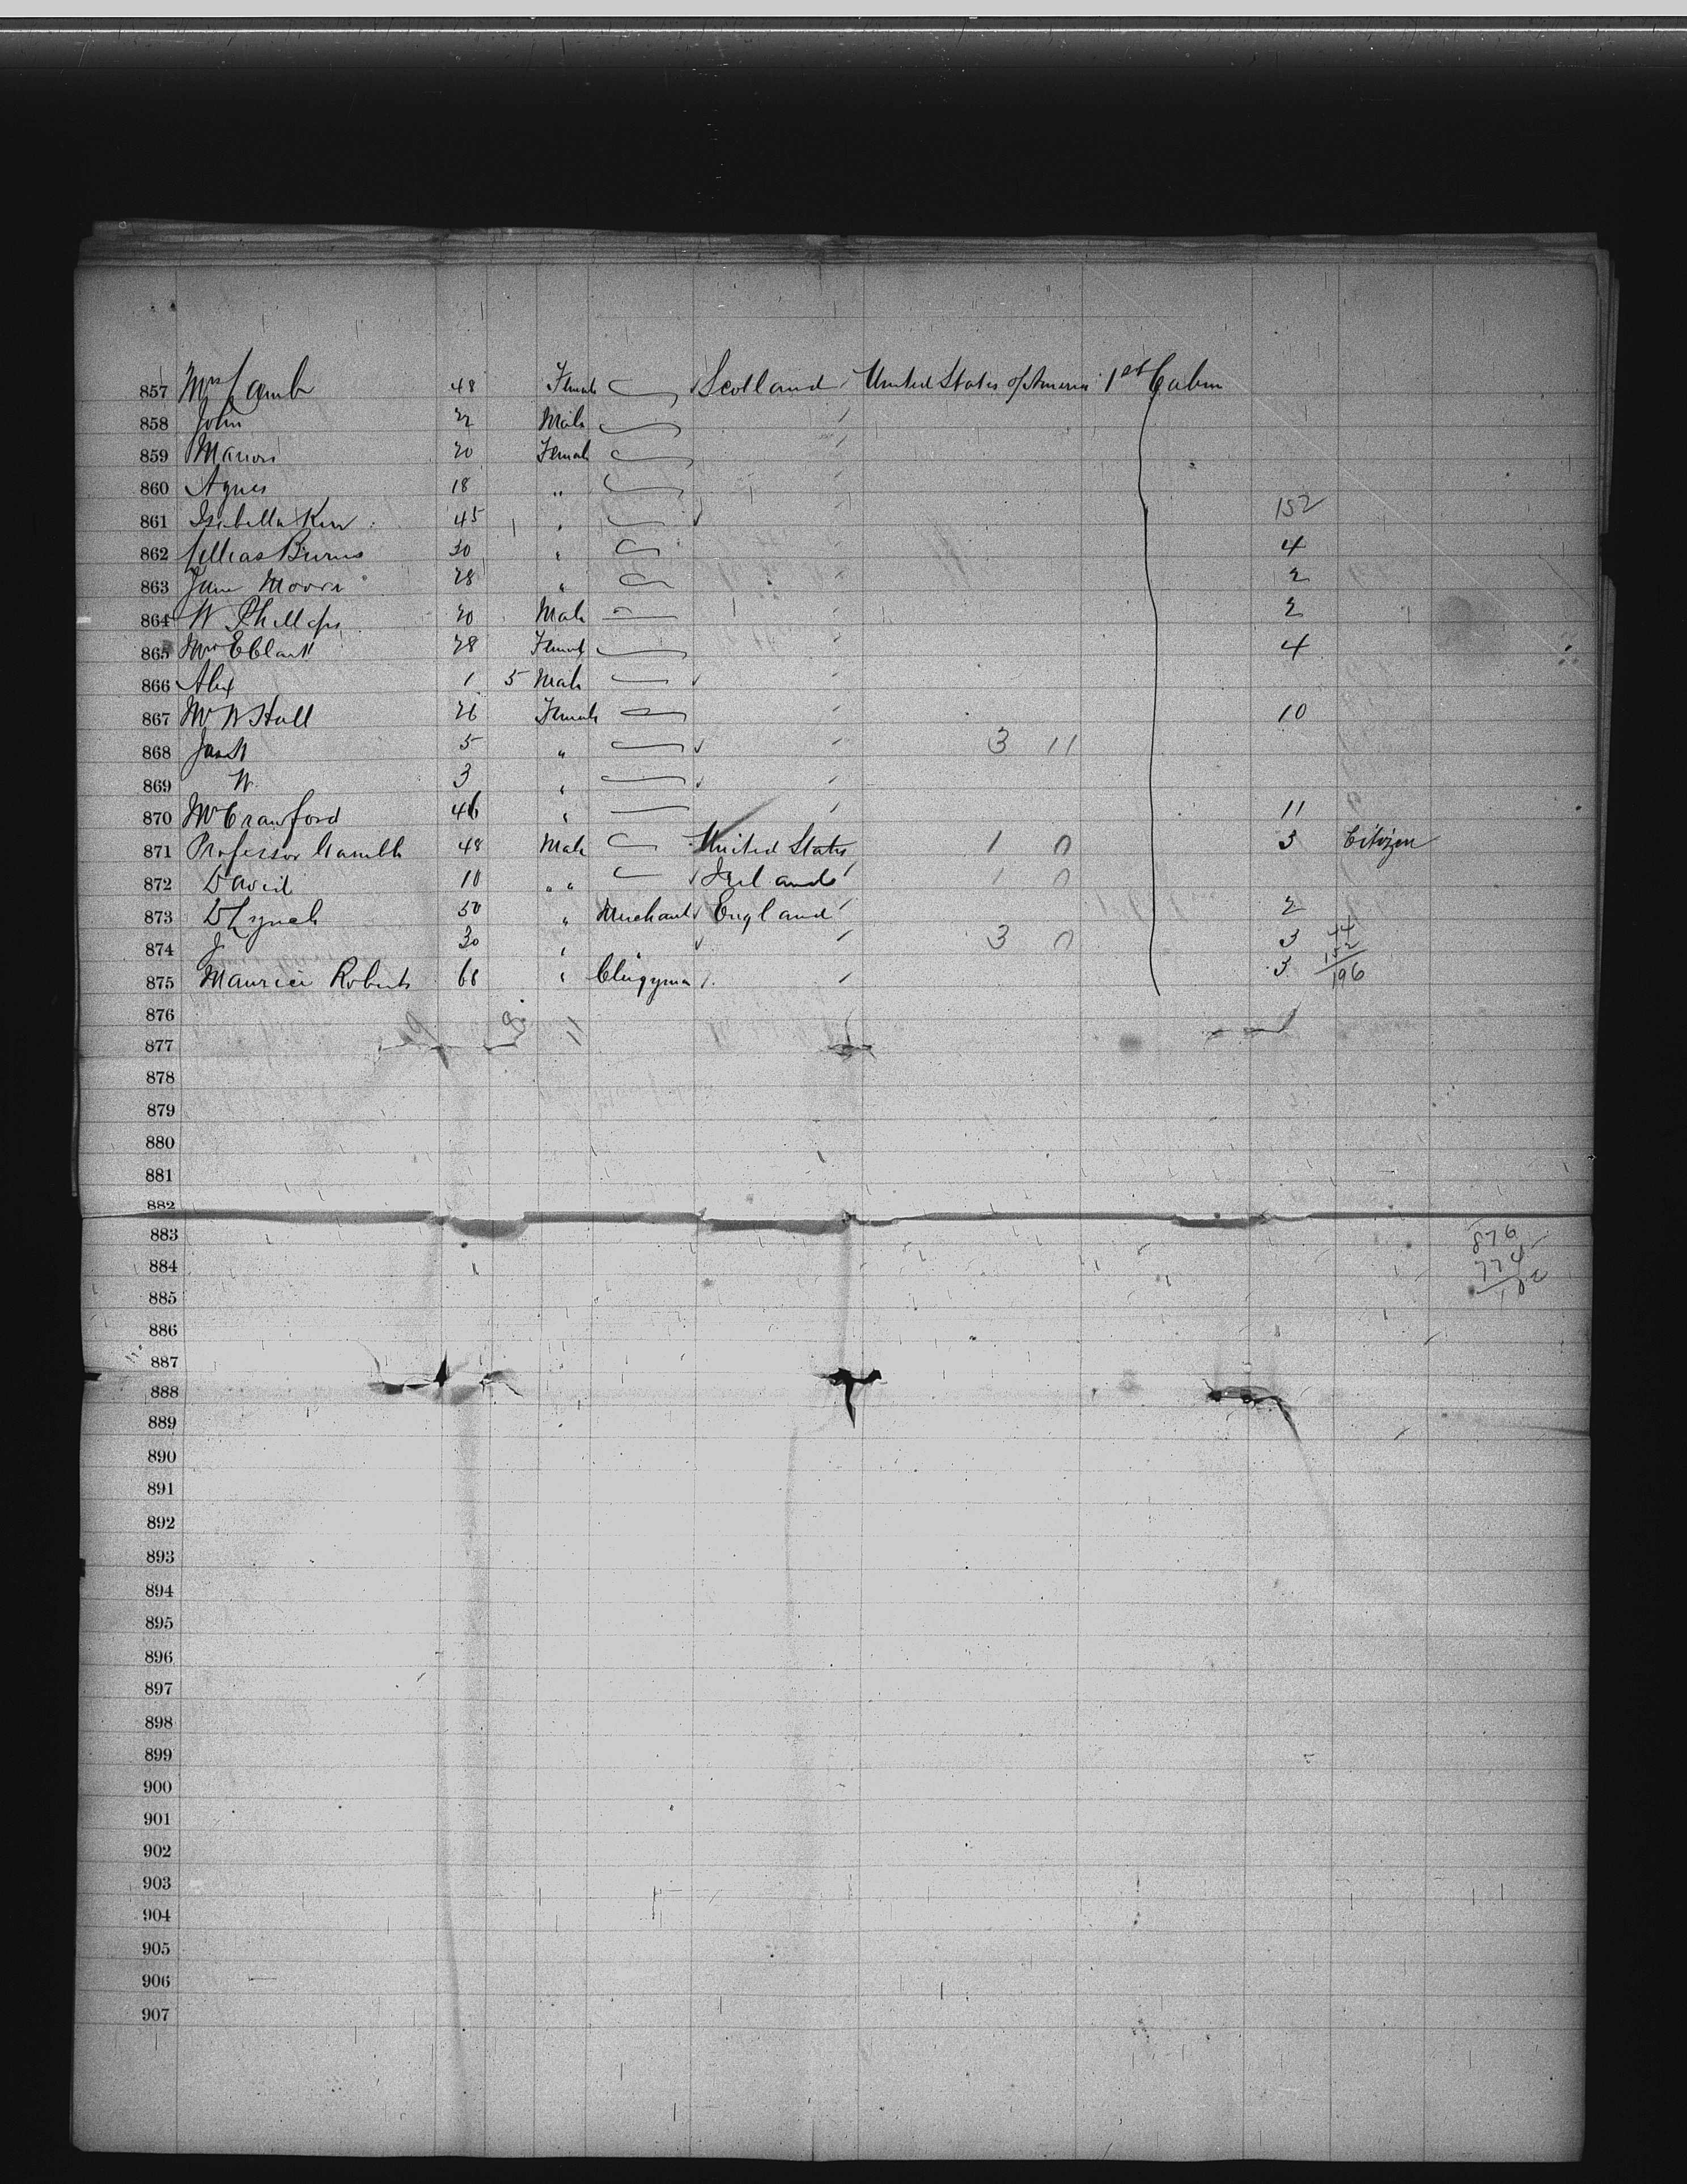 857 Mrs Lamb 48 Female Scotland United States of America 1st Cabin
858 John 22 Male
859 Marion 20 Female
860 Agnes 18 "
861 Isabella Kerr 45 " 152
862 Burns 30 " 4
863 Jane 28 " 2
864 W Phillips 20 Male 2
865 Mrs E Clark 28 Female 4
866 Alex 1 5 Male
867 W Hall 26 Female 10
868 5 " 3 11
869 W 3 "
870 Crawford 46 " 11
871 Professor Gamble 48 Male United States 1 0 3 Citizen
872 David 10 " " Ireland 1 0
873 D Lynch 50 " Merchant England 2
874 J 30 " 3 0 3 44
875 Maurice Roberts 68 " Clergyman 3 152 196
876
877
878
879
880
881
882
883 876
884 774
885 102
886
887
888
889
890
891
892
893
894
895
896
897
898
899
900
901
902
903
904
905
906
907